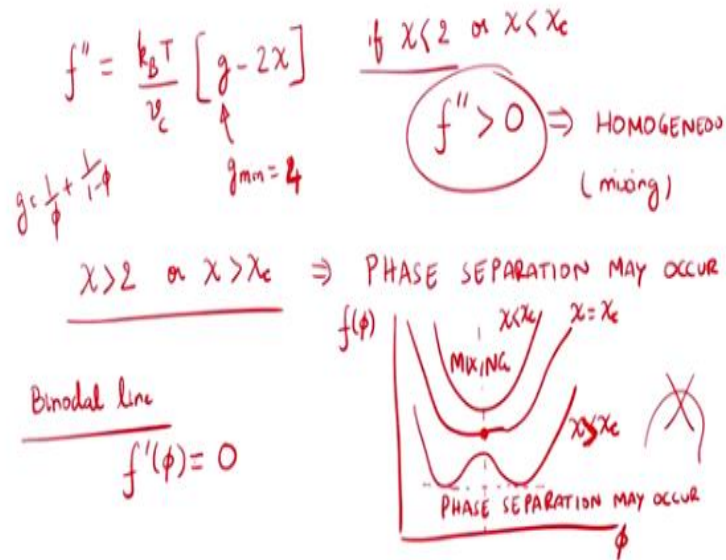 f'' = k_BT/v_c [g - 2χ]
if χ<2 or χ<χc
f'' > 0 ⇒ HOMOGENEO
(mixing)
g = 1/ϕ + 1/1-ϕ
gmin = 4
χ>2 or χ>χc ⇒ PHASE SEPARATION MAY OCCUR
f(ϕ)
χ<χc
χ=χc
MIXING
χ>χc
PHASE SEPARATION MAY OCCUR
ϕ
Binodal line
f'(ϕ) = 0